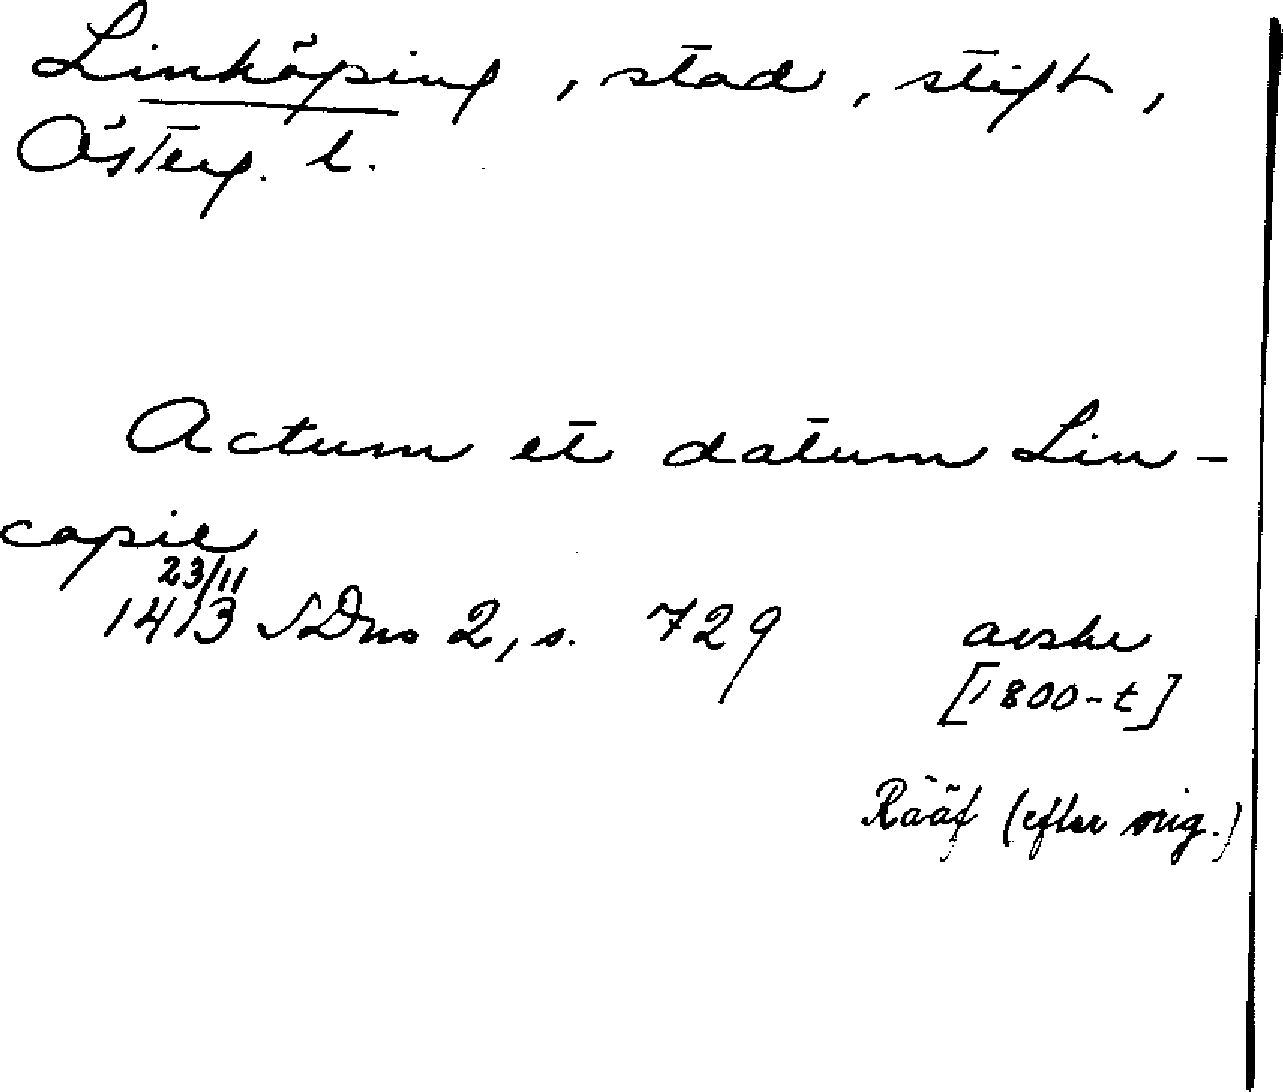 Linköping, stad, stift,
Österg. l.
Actum et datum Lin-
copie
23/11
1413 SDns 2, s. 729 avskr
[1800-t]
Rääf (efter orig.)